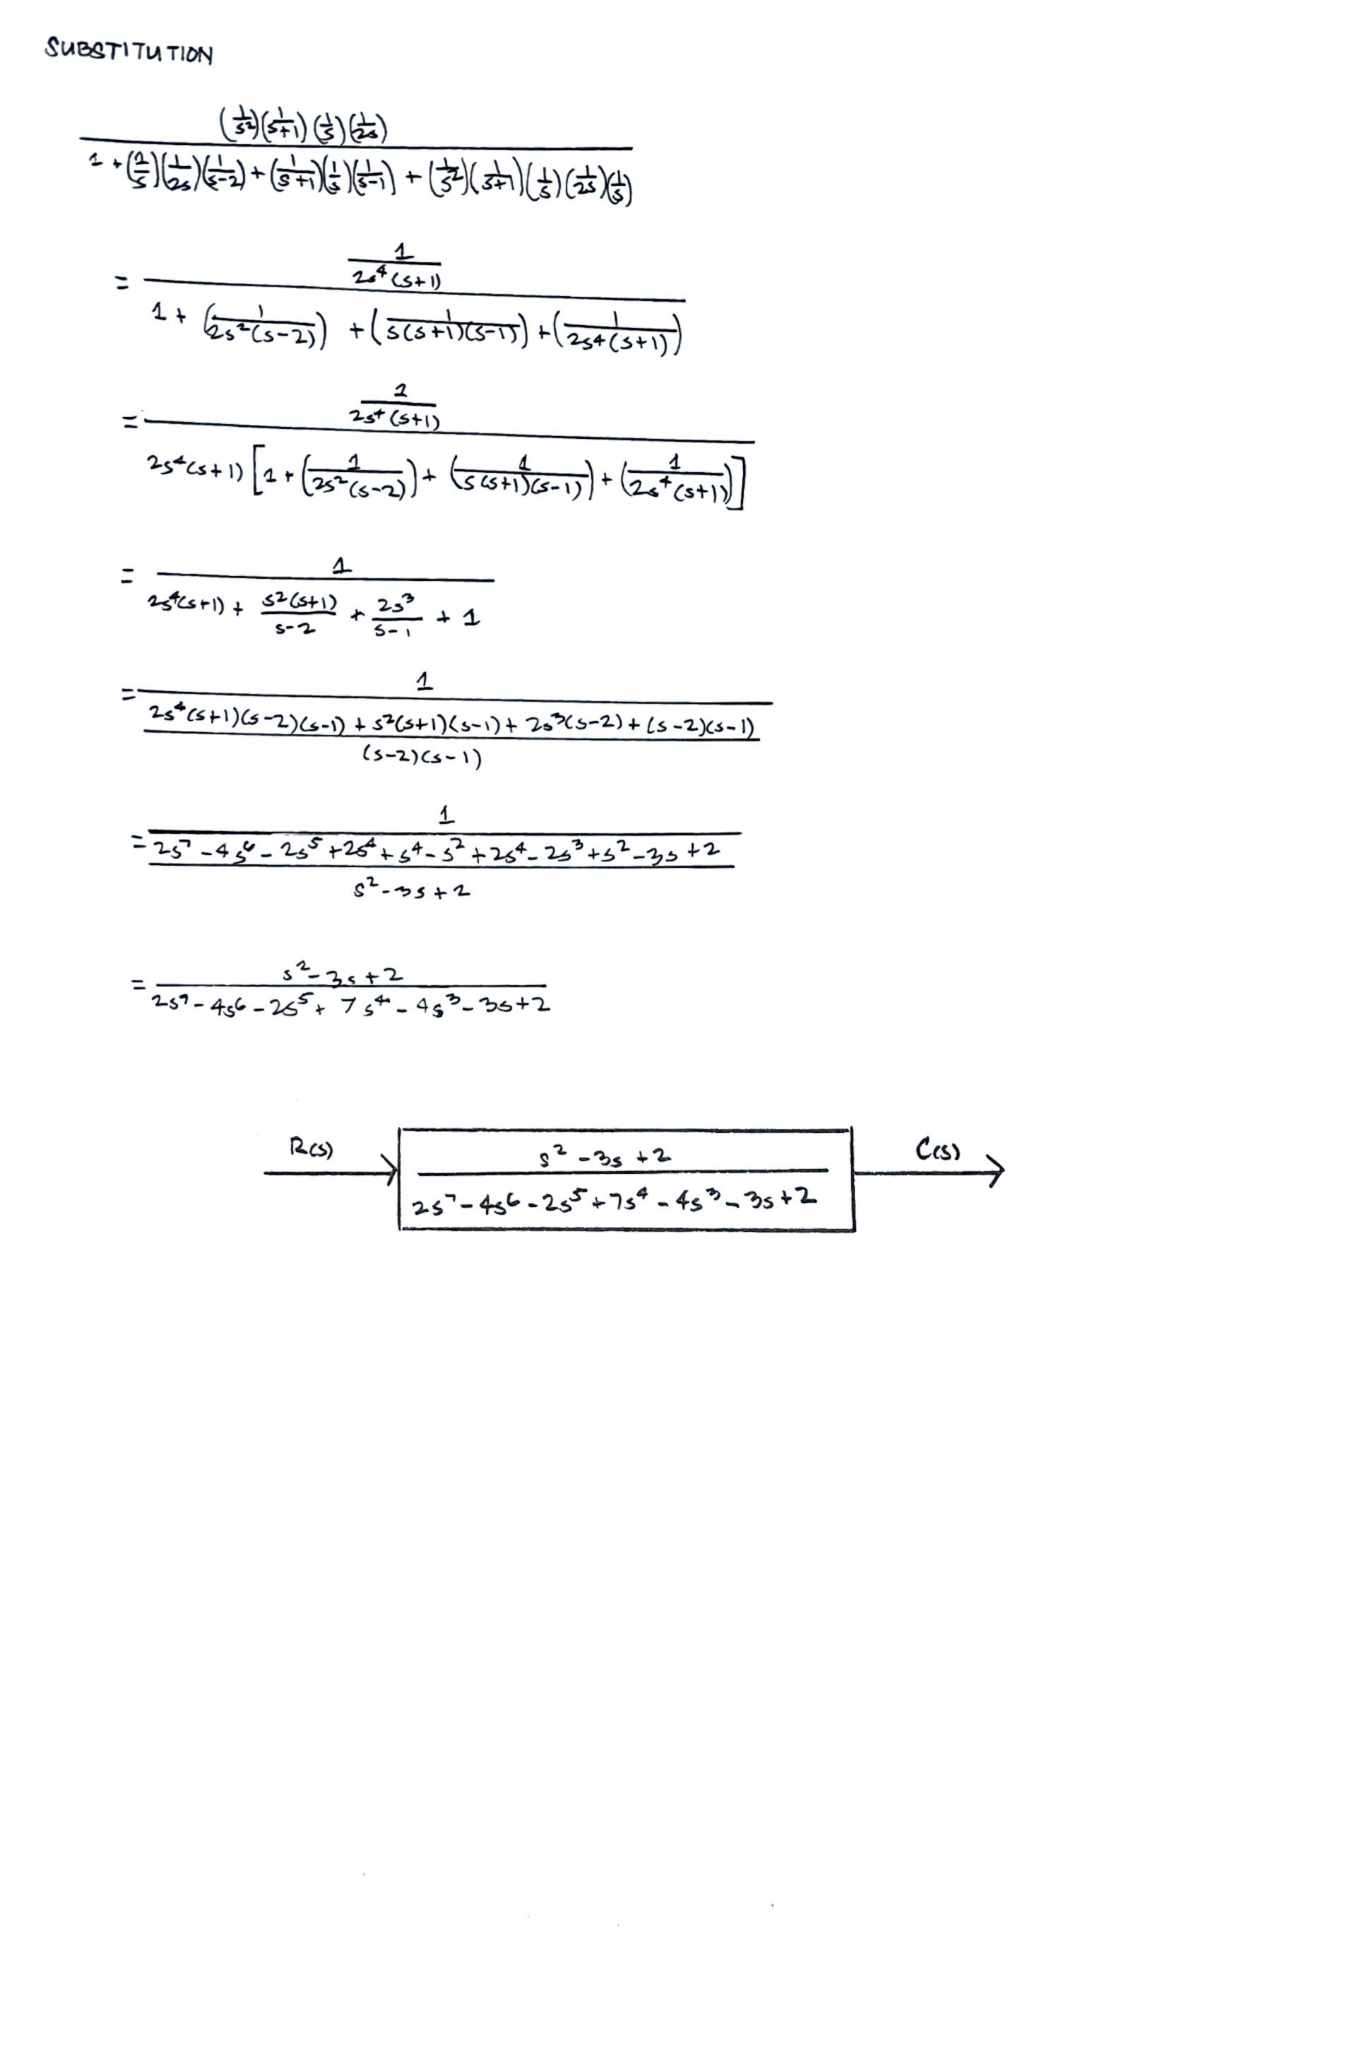 SUBSTITUTION
(1/s²)(1/s+1)(1/s)(1/2s)
1 + (1/s)(1/2s)(1/s-2) + (1/s+1)(1/s)(1/s-1) + (1/s²)(1/s+1)(1/s)(1/2s)(1/s)
1
2s⁴(s+1)
=
1 + (1/2s²(s-2)) + (1/s(s+1)(s-1)) + (1/2s⁴(s+1))
1
2s⁴(s+1)
=
2s⁴(s+1) [1 + (1/2s²(s-2)) + (1/s(s+1)(s-1)) + (1/2s⁴(s+1))]
= 1
2s⁴(s+1) + s²(s+1)/s-2 + 2s³/s-1 + 1
= 1
2s⁴(s+1)(s-2)(s-1) + s²(s+1)(s-1) + 2s³(s-2) + (s-2)(s-1)
(s-2)(s-1)
1
= 2s⁷ - 4s⁶ - 2s⁵ + 2s⁴ + s⁴ - s² + 2s⁴ - 2s³ + s² - 3s + 2
s² - 3s + 2
= s² - 3s + 2
2s⁷ - 4s⁶ - 2s⁵ + 7s⁴ - 4s³ - 3s + 2
R(s) s² - 3s + 2 C(s)
2s⁷ - 4s⁶ - 2s⁵ + 7s⁴ - 4s³ - 3s + 2